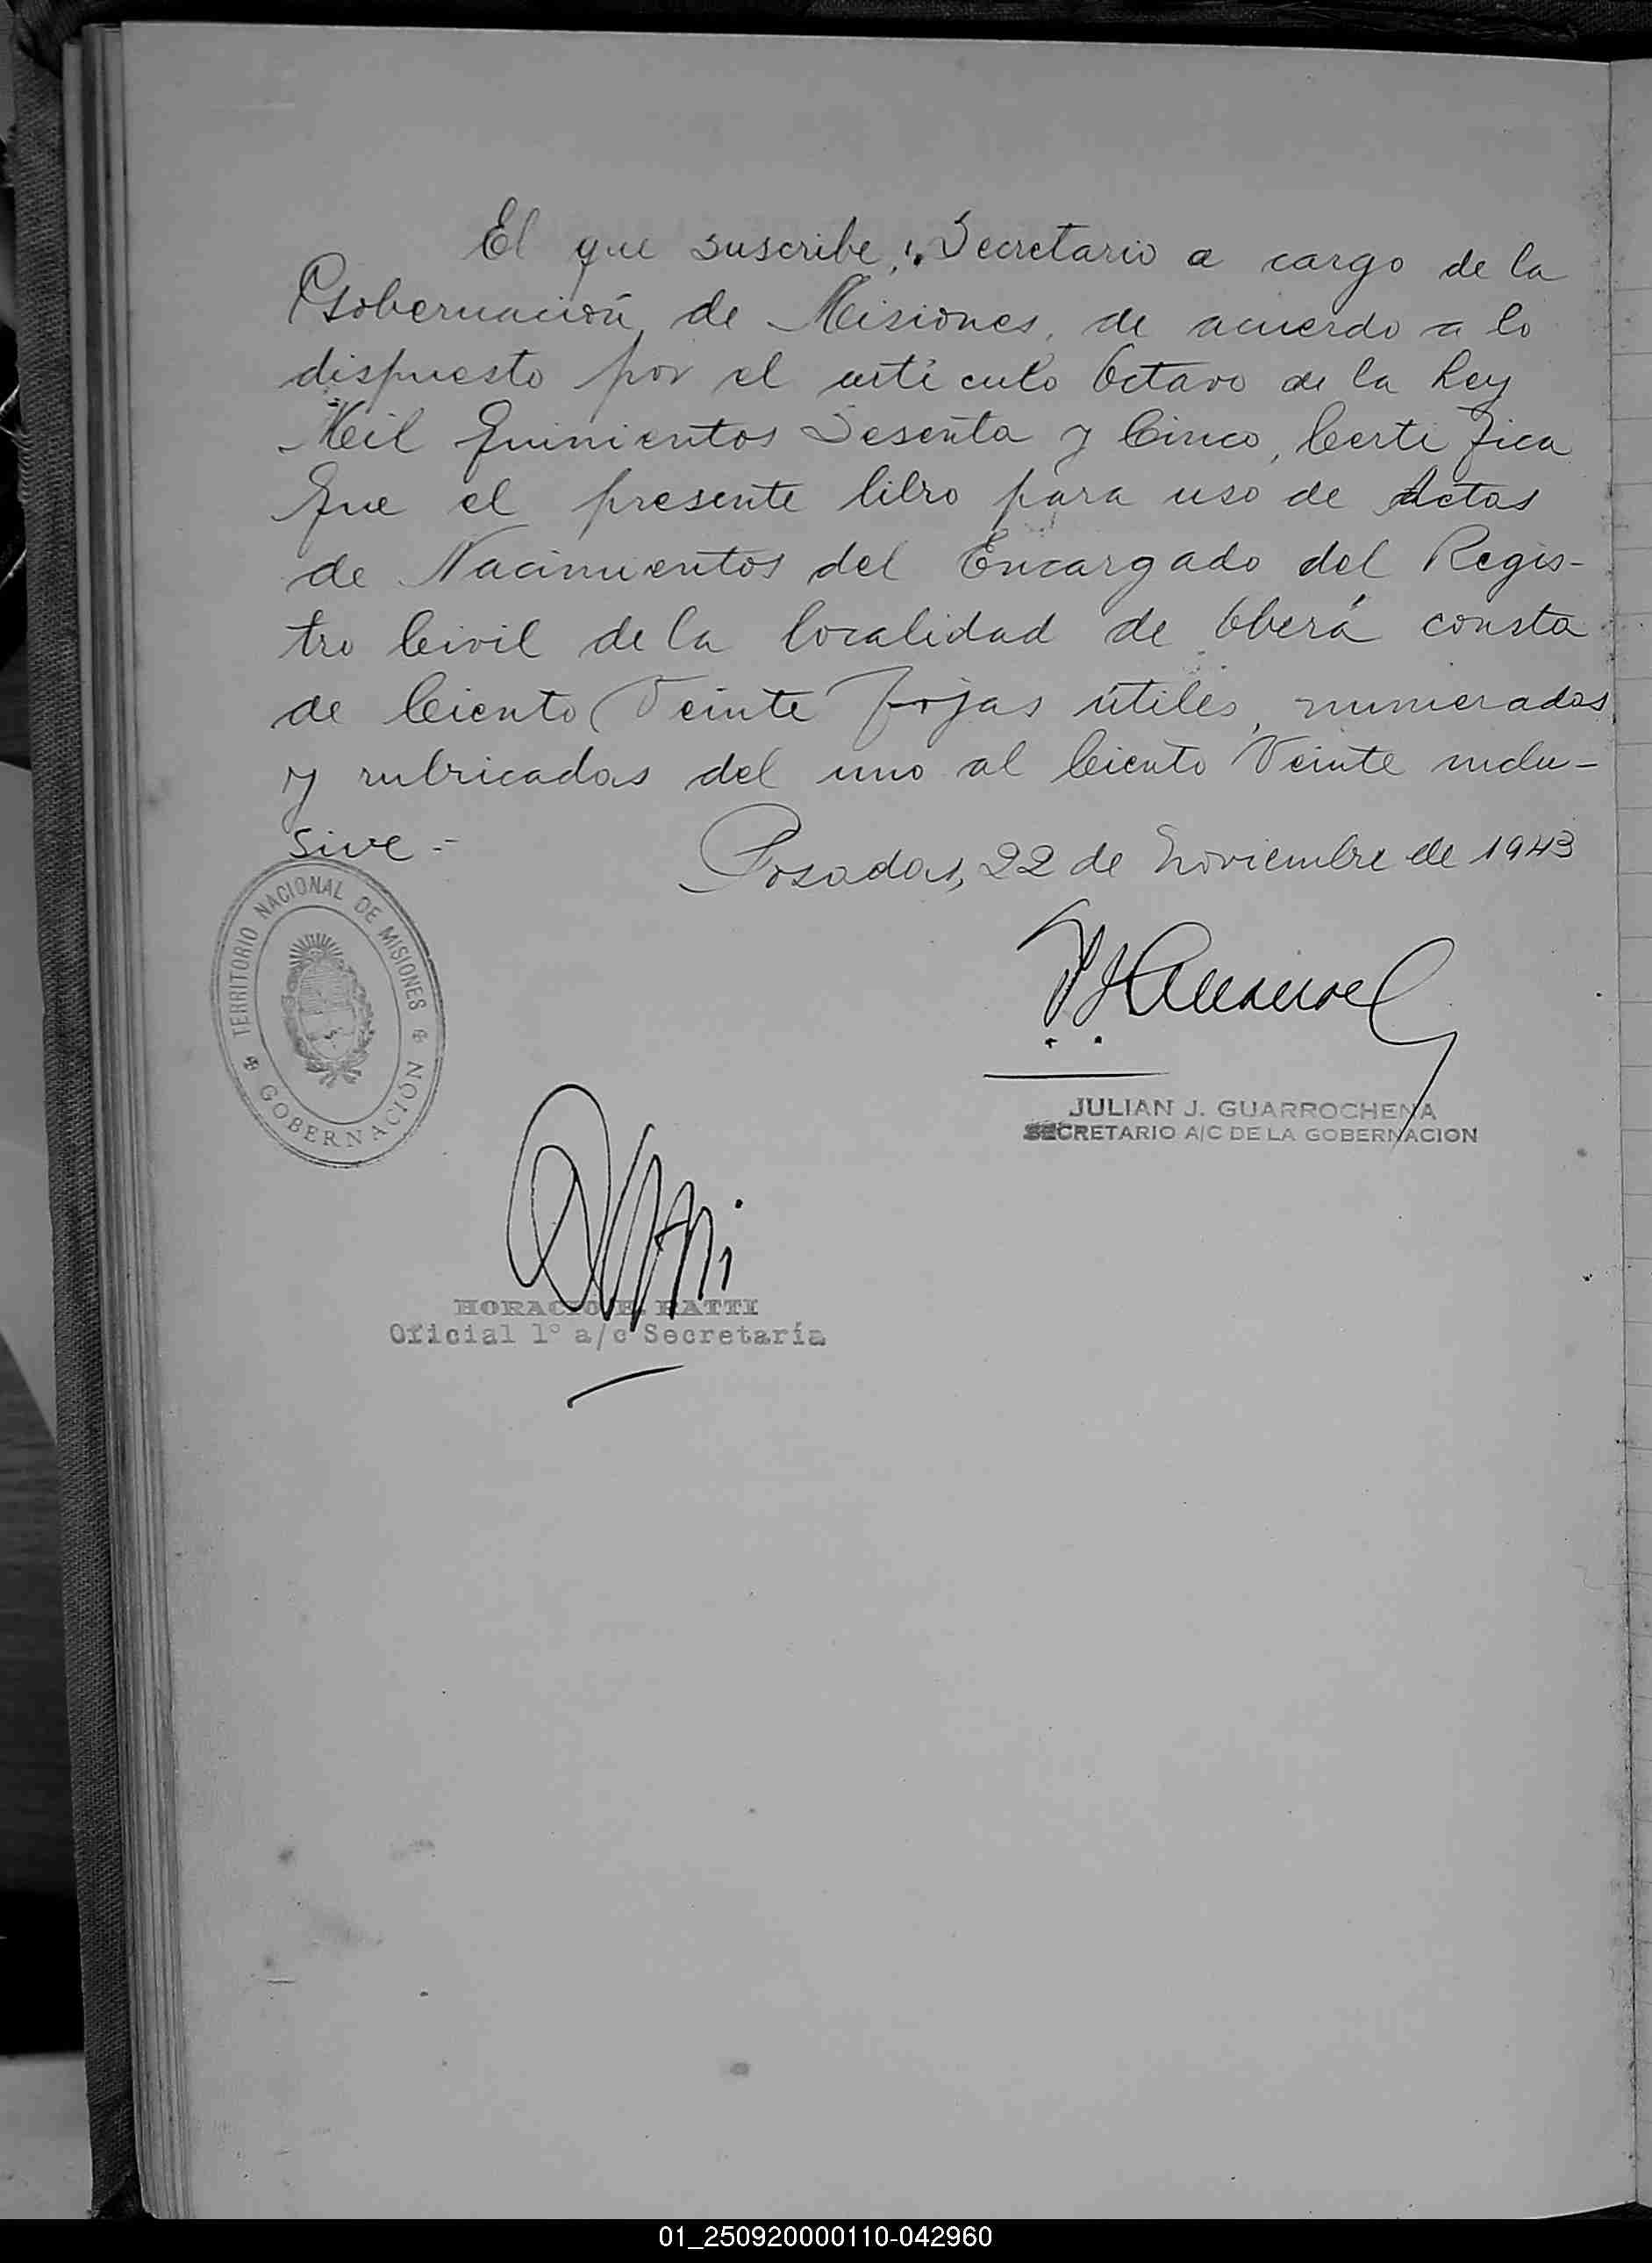 El que suscribe, Secretario a cargo de la
Gobernación de Misiones, de acuerdo a lo
dispuesto por el artículo Octavo de la Ley
Mil Quinientos Sesenta y Cinco, Certifica
Que el presente libro para uso de Actas
de Nacimientos del Encargado del Regis-
tro Civil de la localidad de Oberá consta
de Ciento Veinte fojas útiles, numeradas
y rubricadas del uno al Ciento Veinte inclu-
sive.-
Posadas, 22 de Noviembre de 1943
TERRITORIO NACIONAL DE MISIONES
GOBERNACIÓN
JULIAN J. GUARROCHENA
SECRETARIO A/C DE LA GOBERNACION
HORACIO E. RATTI
Oficial 1º a/c Secretaría
01_250920000110-042960